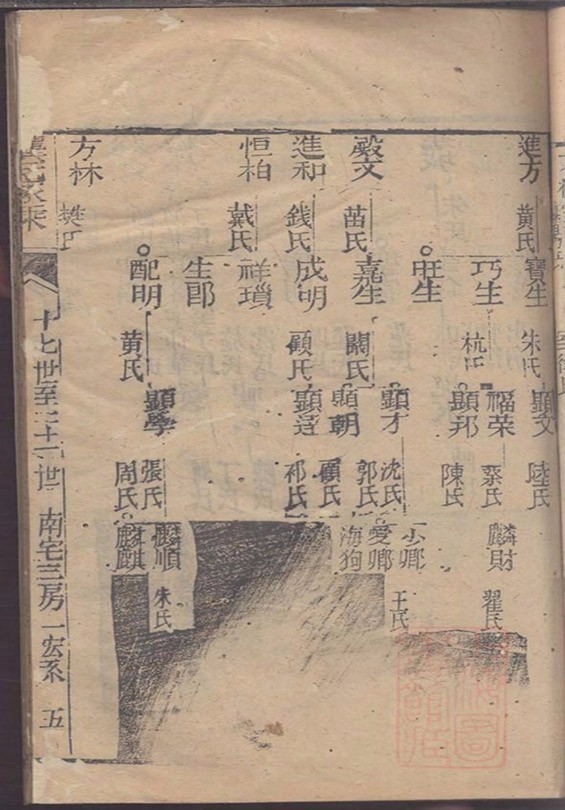 進方 黃氏 寶生 朱氏 顯文 陸氏
巧生 杭氏 福榮 蔡氏 麟財 翟氏
顯邦 陳氏
旺生
殿文 苗氏 嘉生 闕氏 顯才 沈氏 少卿 王氏
愛卿
海狗
顯朝 郭氏 顧氏
進和 錢氏 成明 顧氏 顯達 祁氏
恒柏 戴氏 祥瑣
生郎
配明 黃氏 顯學 張氏 周氏 麟順 朱氏
麟麒
方林 樊氏
家乘
十七世至二十一世 南宅三房一宏系 五